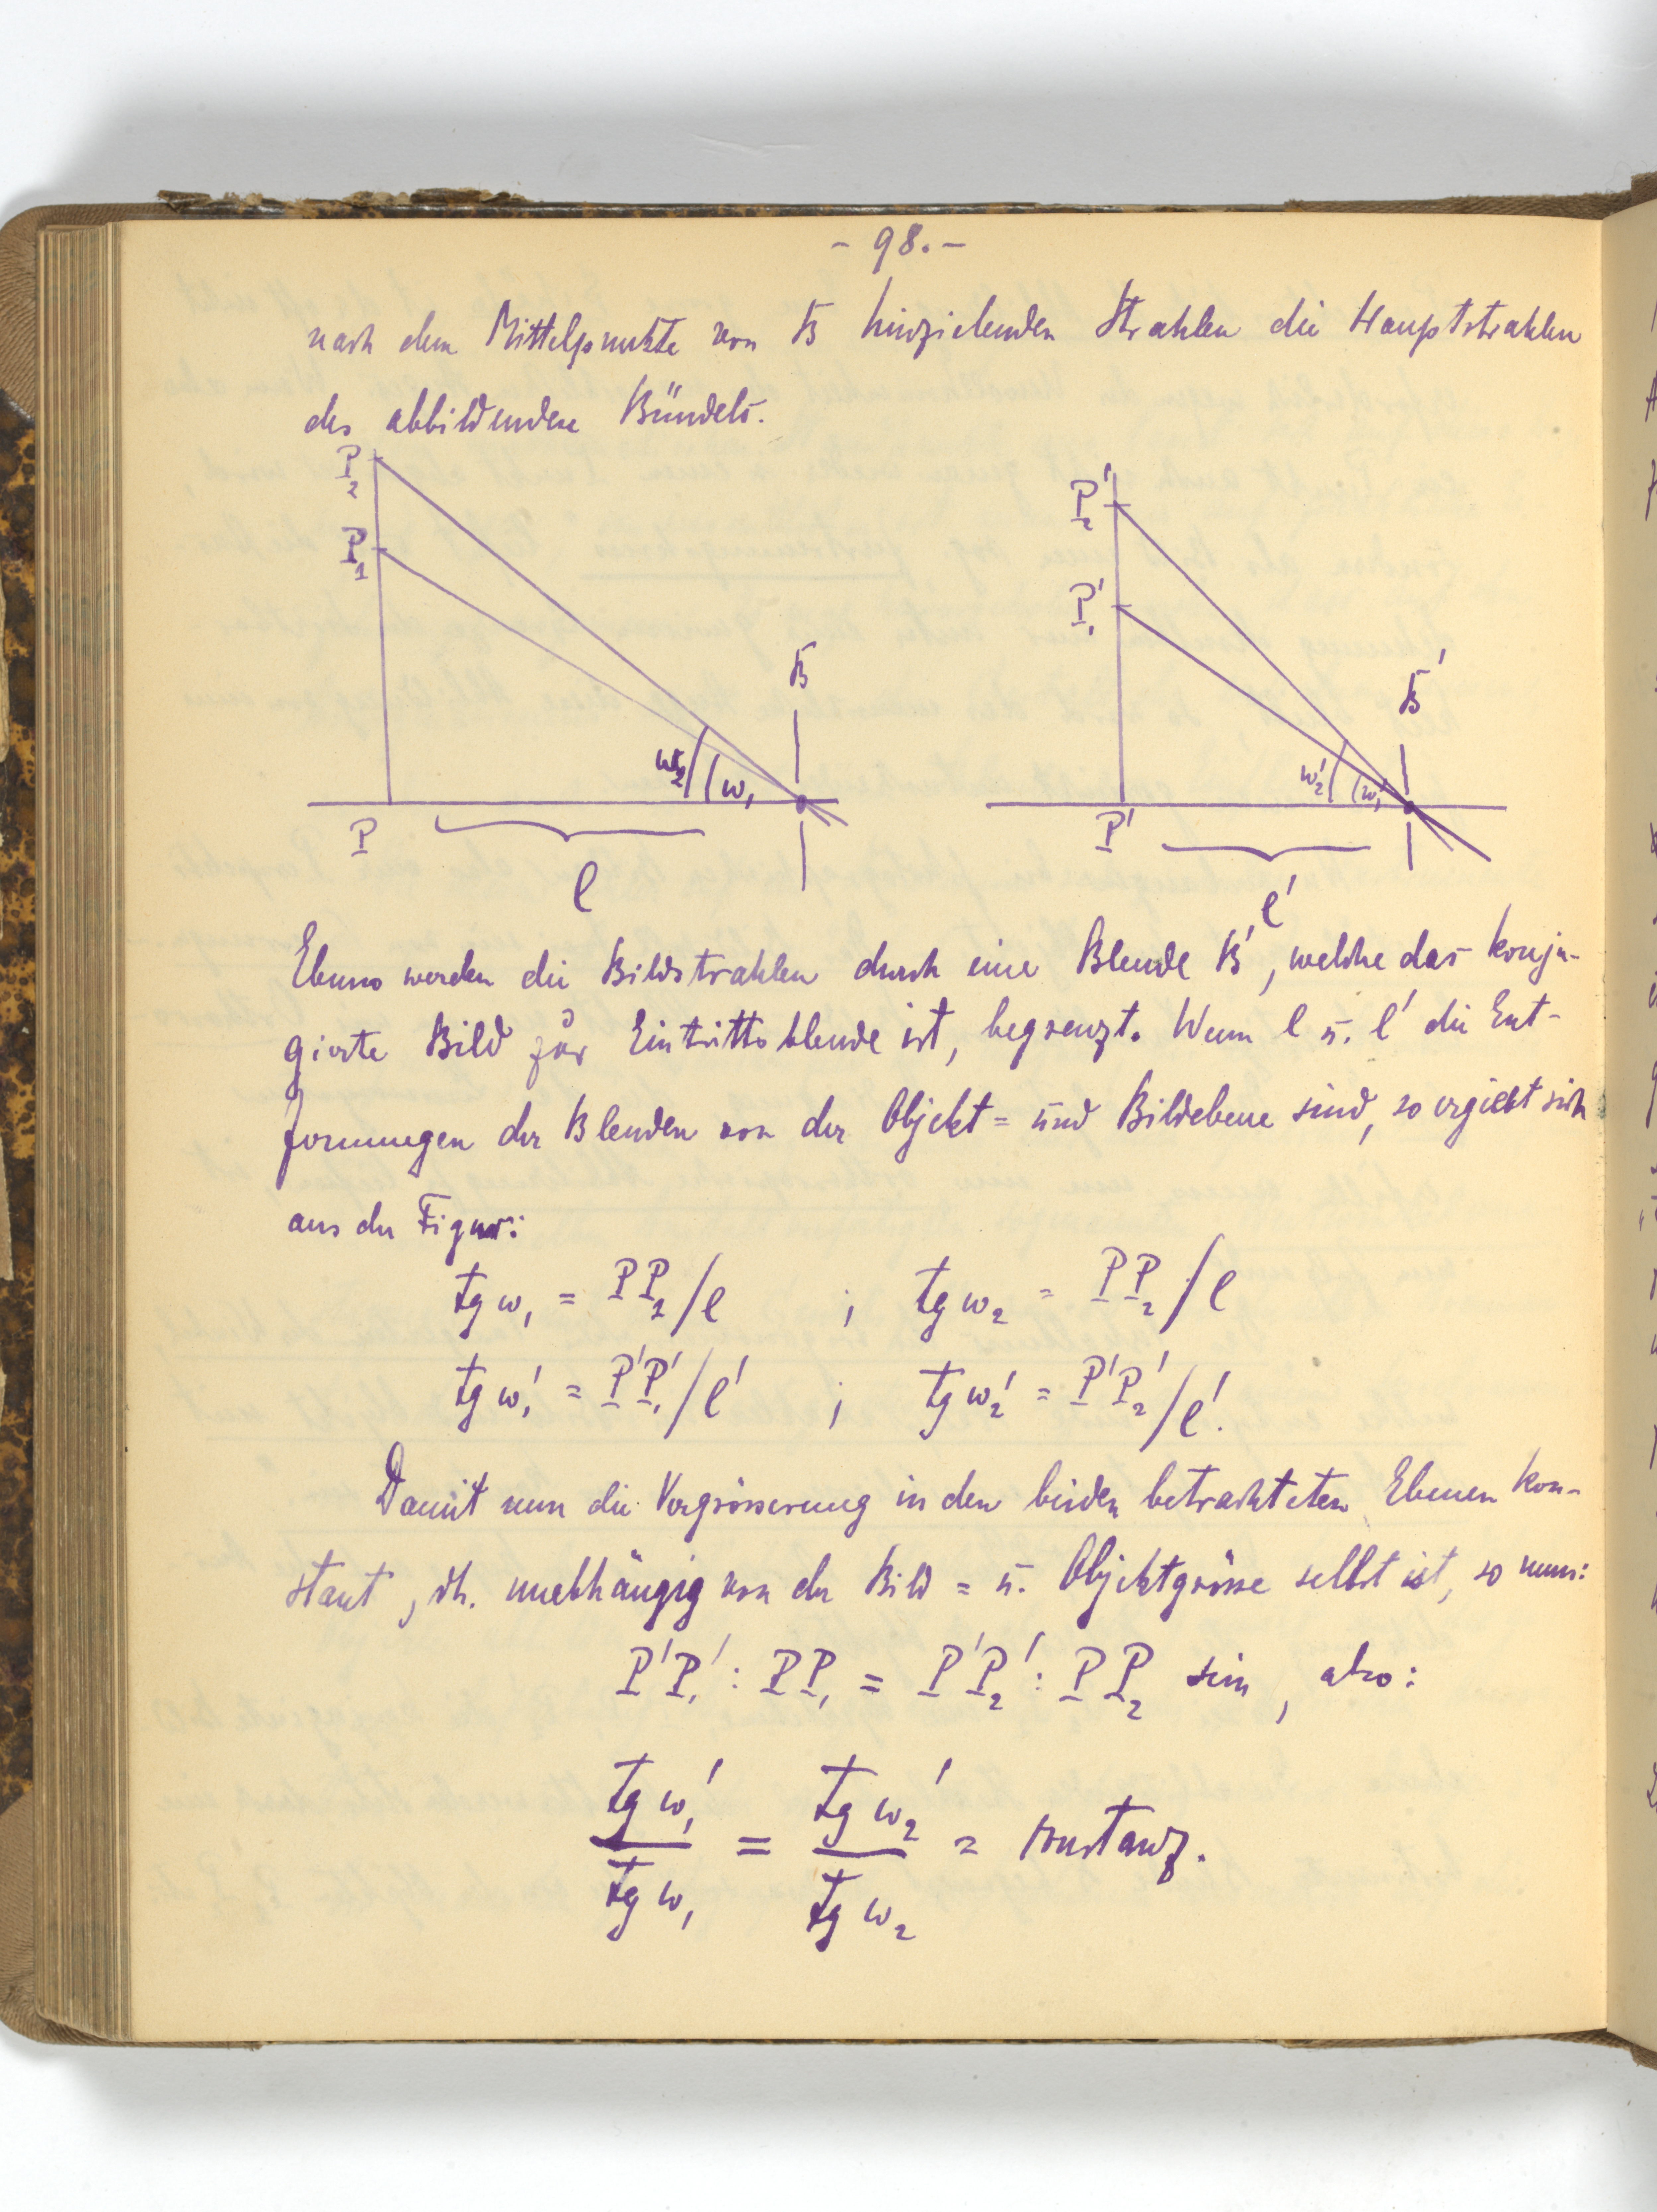 - 98. -
nach dem Mittelpunkte von B hinzielenden Strahlen die Hauptstrahlen
des abbildenden Bündels.
P₂
P₁
B
w₂
w₁
P
l
P₂'
P₁'
B'
w₂'
w₁'
P'
l'
Ebenso werden die Bildstrahlen durch eine Blende B', welche das konju-
gierte Bild zur Eintrittsblende ist, begrenzt. Wenn l u. l' die Ent-
fernungen der Blenden von der Objekt= und Bildebene sind, so ergiebt sich
aus der Figur:
tg w₁ = PP₁/l ; tg w₂ = PP₂/l
tg w₁' = P'P₁'/l' ; tg w₂' = P'P₂'/l'.
Damit nun die Vergrösserung in den beiden betrachteten Ebenen kon-
stant, dh. unabhängig von der Bild = u. Objektgrösse selbst ist, so muss:
P'P₁' : PP₁ = P'P₂' : PP₂ sein, also:
tg w₁' / tg w₁ = tg w₂' / tg w₂ = konstanz.